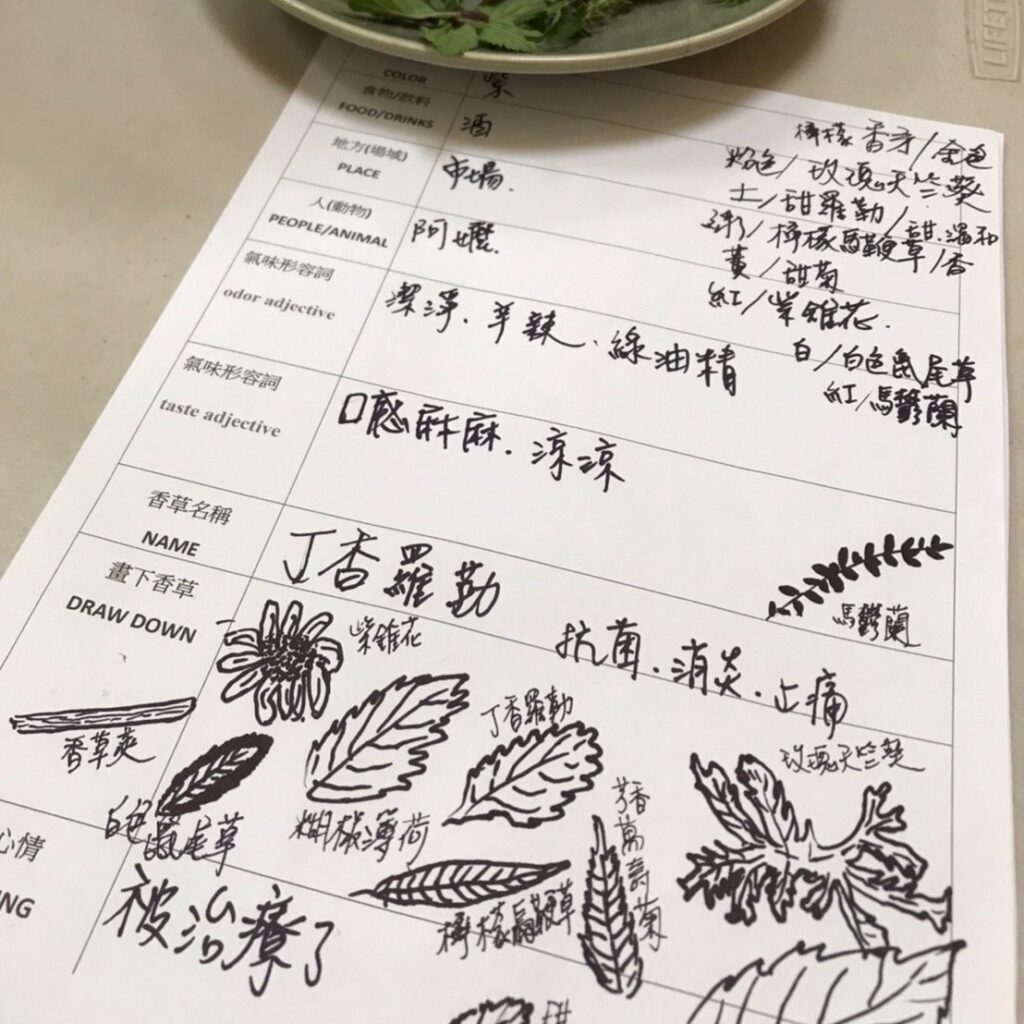 COLOR
紫
食物/飲料
FOOD/DRINKS
酒
地方(場域)
PLACE
市場.
人(動物)
PEOPLE/ANIMAL
阿嬤.
氣味形容詞
odor adjective
潔淨.辛辣.綠油精
氣味形容詞
taste adjective
口感麻麻.涼涼
香草名稱
NAME
丁香羅勒
檸檬香茅/金色
玫瑰天竺葵
土/甜羅勒/甜.溫和
檸檬馬鞭草/香
黃/甜菊
紅/紫錐花.
白/白色鼠尾草
紅/馬鬱蘭
畫下香草
DRAW DOWN
馬鬱蘭
抗菌.消炎.止痛
紫錐花
丁香羅勒
玫瑰天竺葵
香草莢
白色鼠尾草
薄荷
芳香萬壽菊
檸檬馬鞭草
心情
ING
被治療了
甜
LIFETI